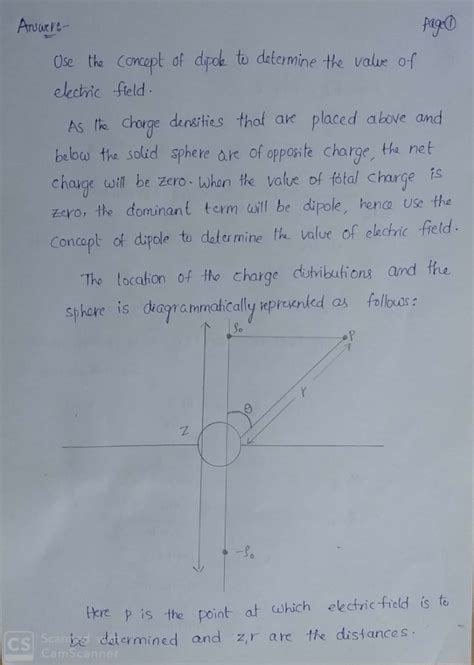 Answer:-
page ①
Use the concept of dipole to determine the value of
electric field.
As the charge densities that are placed above and
below the solid sphere are of opposite charge, the net
charge will be zero. When the value of total charge is
zero, the dominant term will be dipole, hence use the
concept of dipole to determine the value of electric field.
The location of the charge distributions and the
sphere is diagrammatically represented as follows:
ρ₀
P
θ
r
Z
-ρ₀
Here P is the point at which electric field is to
be determined and z,r are the distances.
CS
CamScanner